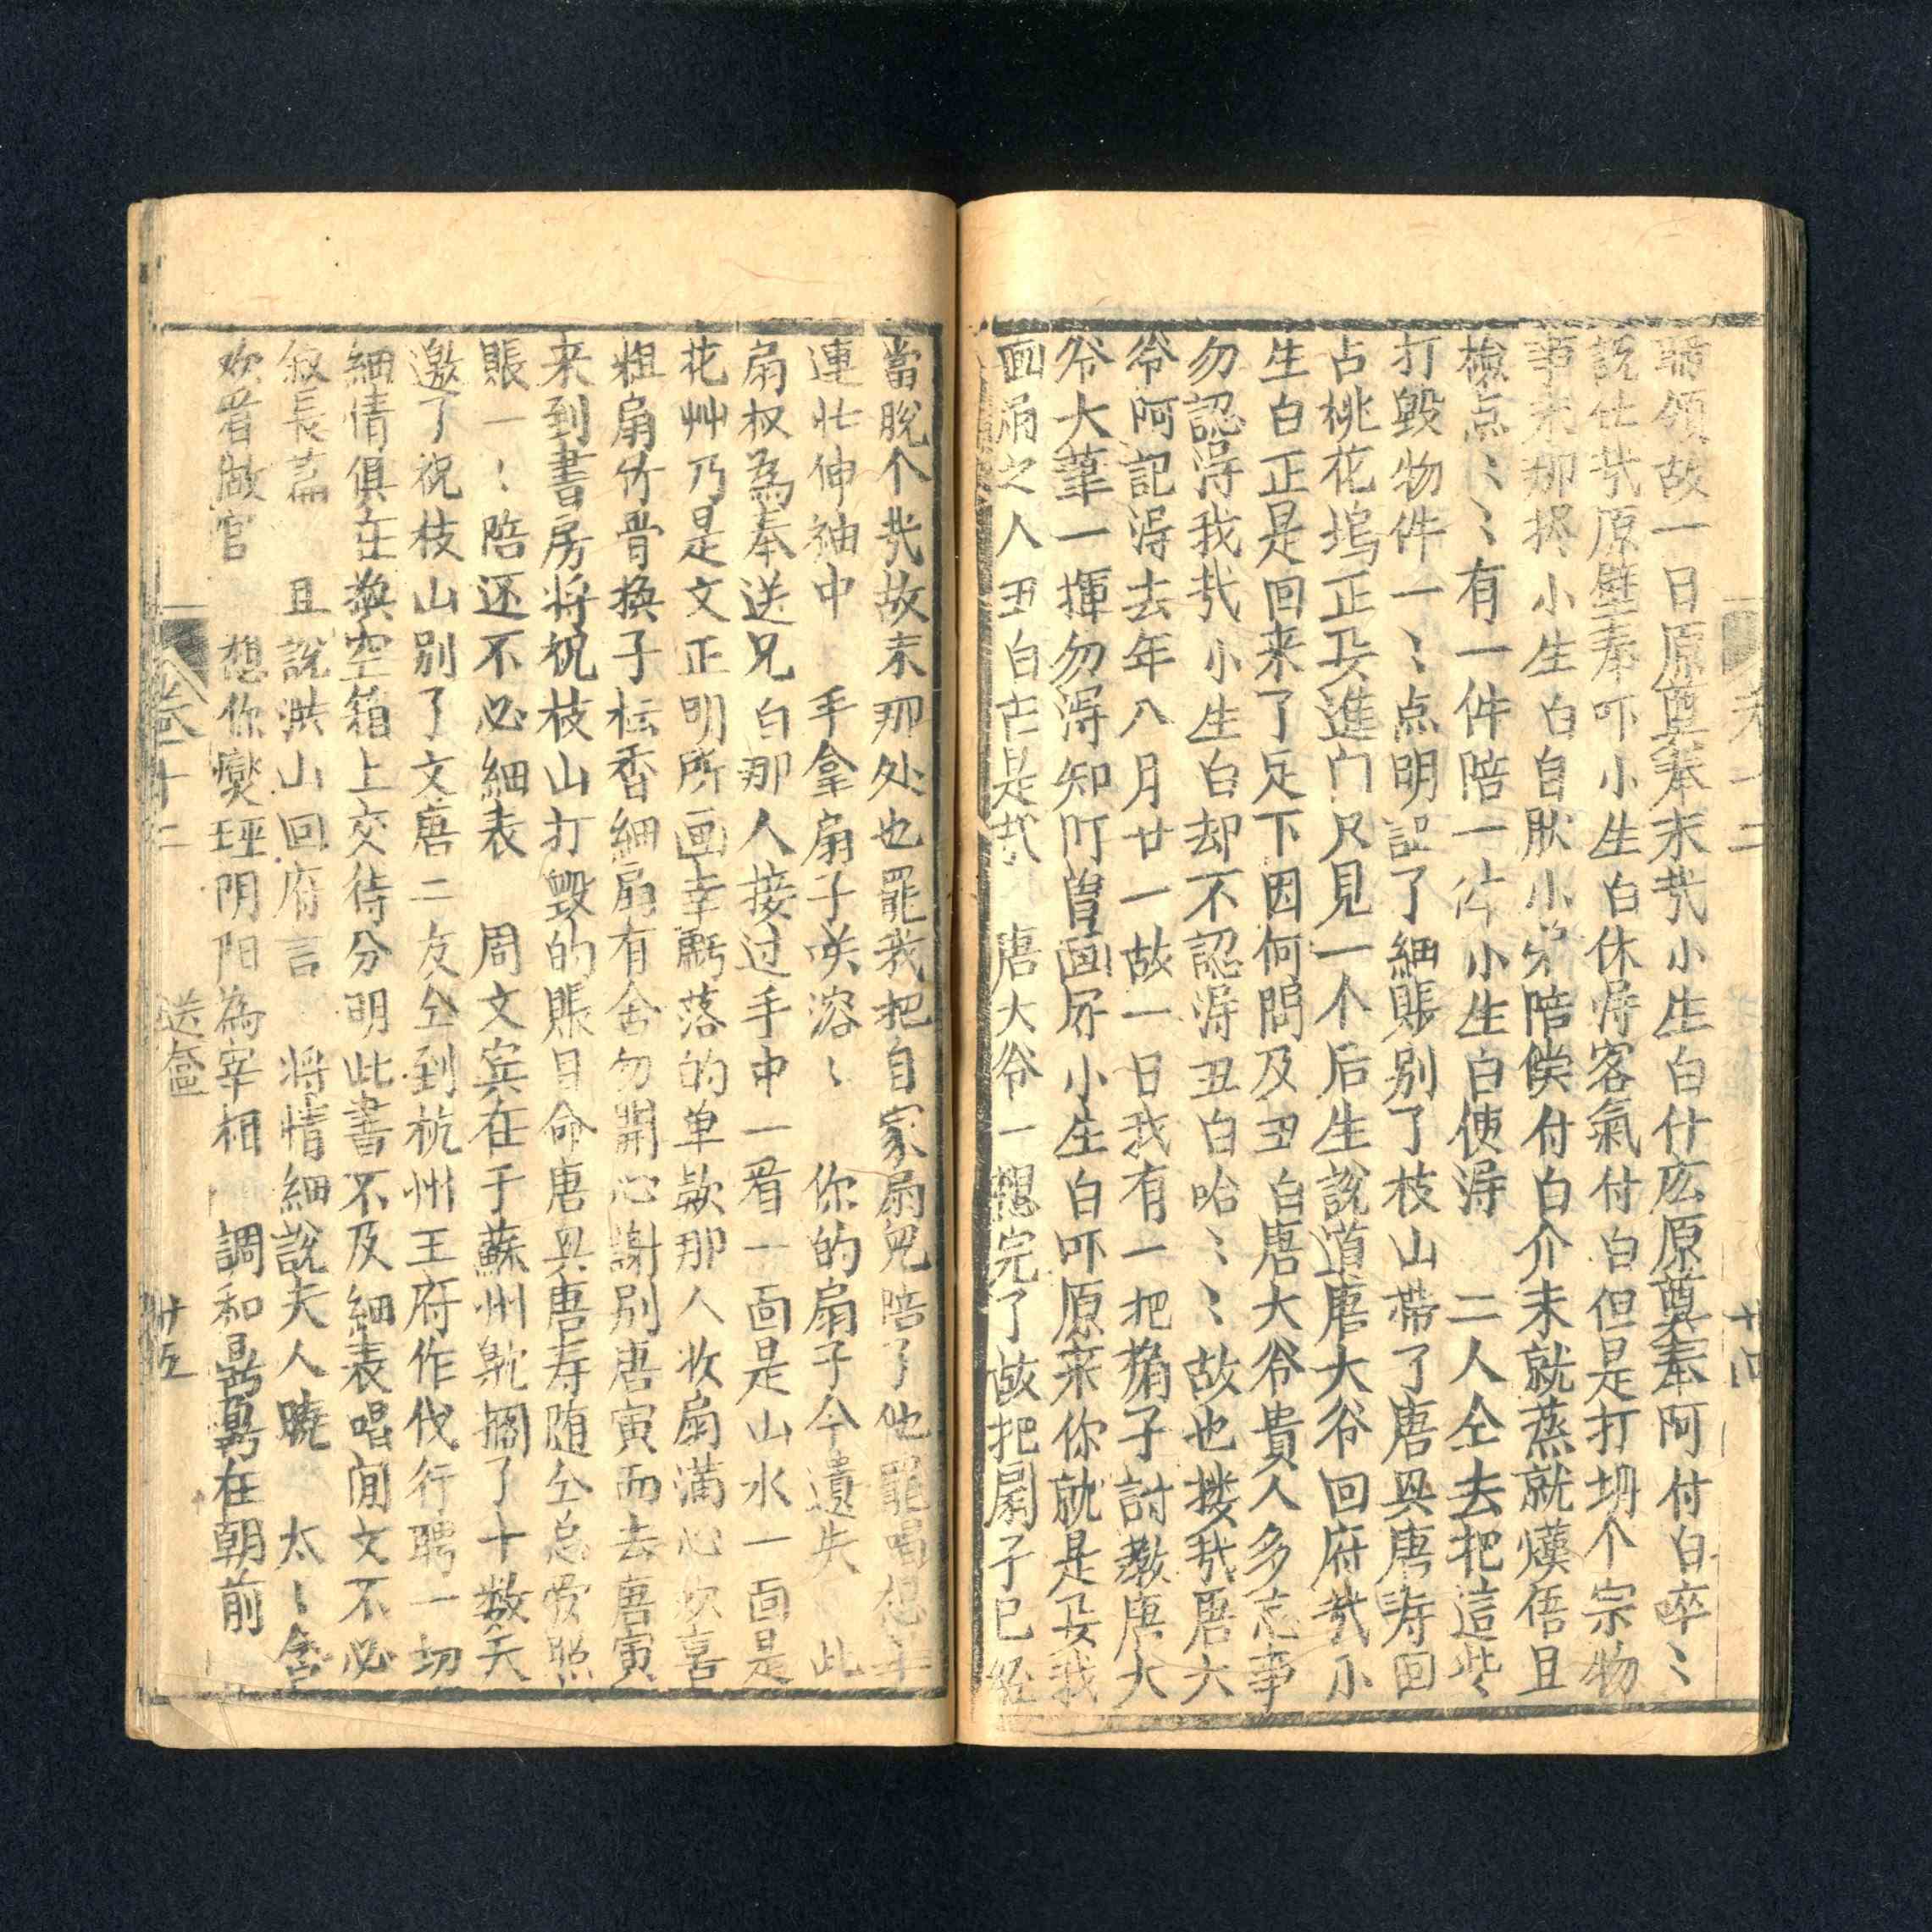 卷十二
十四
領故一日原璧奉末哉小生白什庅原璧奉阿付白卒〻
說仕哉原璧奉吓小生白休淂客氣付白但是打坍个宗物
事末却捹小生白自肰小弟陪俟付白介末就蒸就熯俉且
檢点〻〻有一件陪一件小生白使淂　二人仝去把這些〻
打毀物件一〻点明記了細賬别了枝山帶了唐興唐寿回
占桃花塢正要進门只見一个后生說道唐大爷回府哉小
生白正是回来了足下因何問及丑白唐大爷貴人多忘事
勿認淂我哉小生白却不認淂丑白哈〻〻故也搂哉唐大
爷阿記淂去年八月廿一故一日我有一把扇子討教唐大
爷大筆一揮勿淂知阿曽画好小生白吓原来你就是要我
画扇之人丑白正是哉　唐大爷一想完了故把扇子已經
當脫个哉故末那处也罷我把自家扇兒陪了他罷唱想
連忙伸袖中　手拿扇子咲溶〻　你的扇子今遺失　此
扇权為奉送兄　白那人接过手中一看一面是山水一面是
花艸乃是文正明所画幸虧落的单欵那人收扇满心欢喜
粗扇竹骨换子檀香細扇有舍勿開心謝别唐寅而去唐寅
来到書房将祝枝山打毀的賬目命唐興唐寿随仝总管照
賬一〻陪还不必細表　周文賓在于蘇州躭擱了十数天
邀了祝枝山别了文唐二友仝到杭州王府作伐行聘一切
細情俱在換空箱上交待分明此書不及細表唱閒文不必
叙長篇　且說洪山回府言　将情細說夫人曉　太〻含
欢看做官　想你爕理阴阳為宰相　調和鼎鼐在朝前
卷十二
送盤
十五